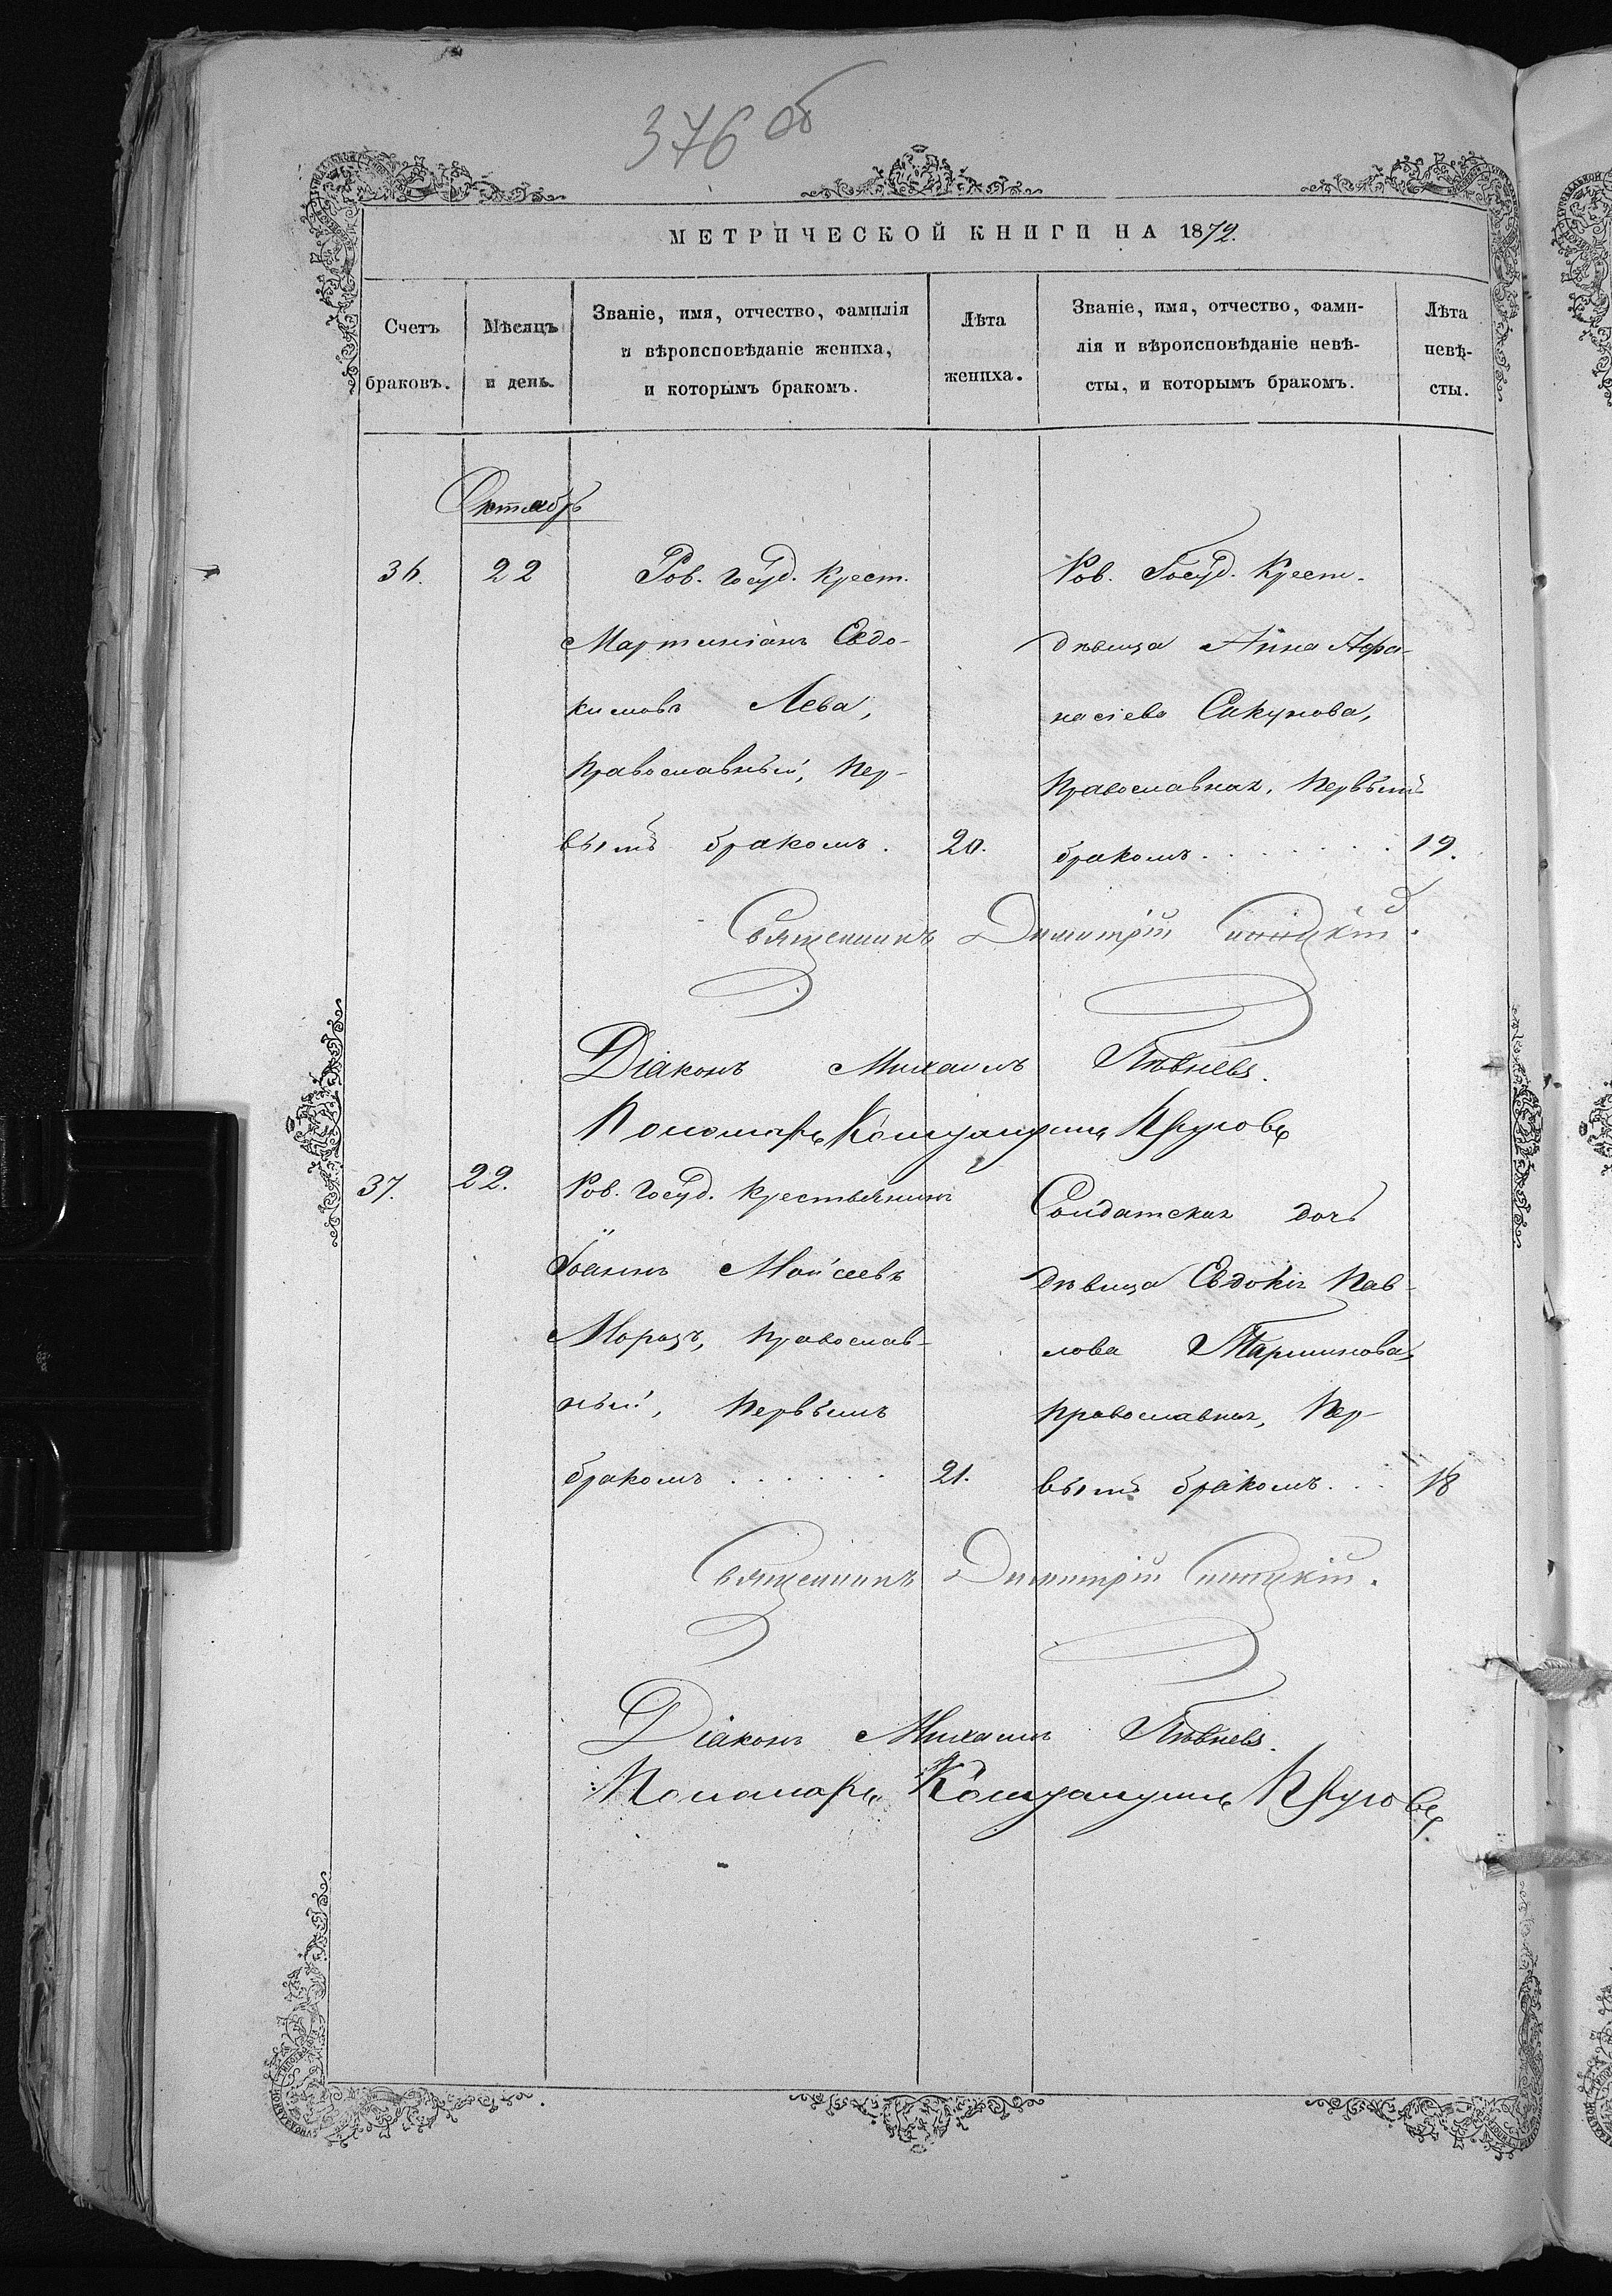 376 об
МЕТРИЧЕСКОЙ КНИГИ НА 1872.
Счетъ браковъ.
Мѣсяцъ и день.
Званіе, имя, отчество, фамилія
и вѣроисповѣданіе жениха,
и которымъ бракомъ.
Лѣта жениха.
Званіе, имя, отчество, фами-
лія и вѣроисповѣданіе невѣ-
сты, и которымъ бракомъ.
Лѣта невѣ-
сты.
Октябрь
36.
22
Ров. Госуд. Крест.
Мартиніанъ Евдо-
кимовъ Лева,
Православный, Пер-
вымъ бракомъ.
20.
Ров. Госуд. Крест.
дѣвица Анна Афа-
насіева Сакунова,
Православная, Первымъ
бракомъ . . . . . . .
19.
Священникъ Димитрій
Діаконъ Михаилъ Пѣвневъ.
Пономарь Константинъ
37.
22.
Ров. Госуд. Крестьянинъ
Іоаннъ Моѵсеевъ
Морозъ, Православ-
ный, Первымъ
бракомъ . . . . . .
21.
Солдатская дочь
дѣвица Евдокія Пав-
лова Паршикова,
Православная, Пер-
вымъ бракомъ . . .
18
Священникъ Димитрій
Діаконъ Михаилъ Пѣвневъ.
Пономарь Константинъ